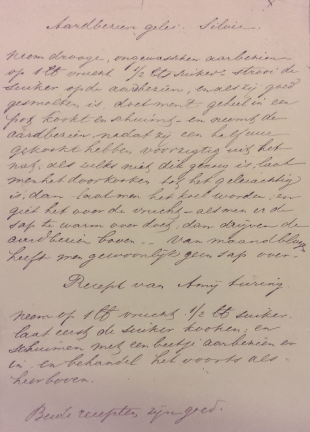 Aardbeien gelei. Silvie.
neem drooge, ongewasschen aarbeien
op 1 lb vrucht 1/2 lb suiker, strooi de
suiker op de aardbeien, en als zij goed
gesmolten is, doet men 't geheel in een
pot, kookt en schuimt en neemt de
aardbeien, nadat zij een half uur
gekookt hebben voorzigtig uit het
nat, als zulks niet dik genoeg is, laat
men het doorkooken tot het geleiachtig
is, dan laat men het koel worden, en
giet het over de vrucht als men er de
sap te warm over doet, dan drijven de
aardbeien boven. Van maandbloeij
heeft men gewoonlijk geen sap over.
Recept van Amy
neem op 1 lb vrucht 1/2 lb suiker.
laat eerst de suiker kooken, en
schuimen met een beetje aarbeien er
in en behandel het voorts als
hierboven.
Beide recepten zijn goed.